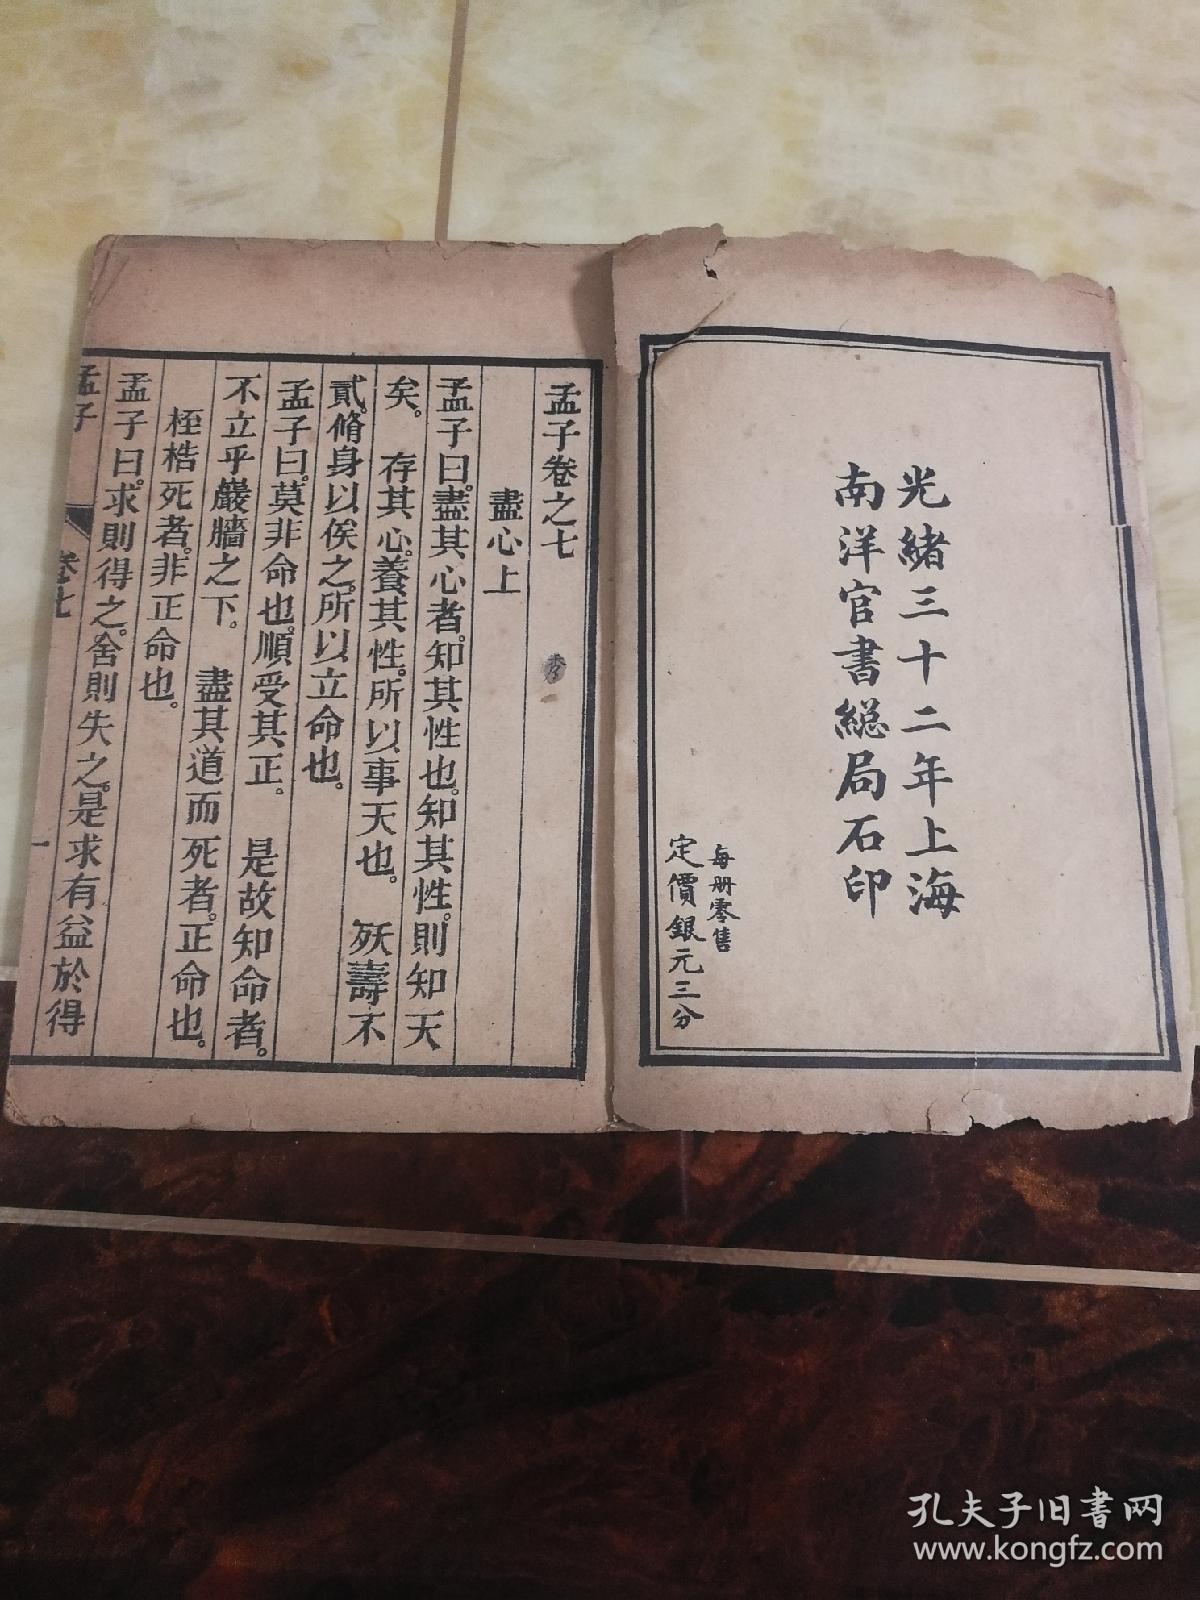 光緒三十二年上海
南洋官書總局石印
每册零售
定價銀元三分
孟子卷之七
盡心上
孟子曰。盡其心者。知其性也。知其性。則知天
矣。 存其心。養其性。所以事天也。 殀壽不
貳。脩身以俟之。所以立命也。
孟子曰。莫非命也。順受其正。 是故知命者。
不立乎巖牆之下。 盡其道而死者。正命也。
桎梏死者。非正命也。
孟子曰。求則得之。舍則失之。是求有益於得
孟子 卷七 一
孔夫子旧書网
www.kongfz.com